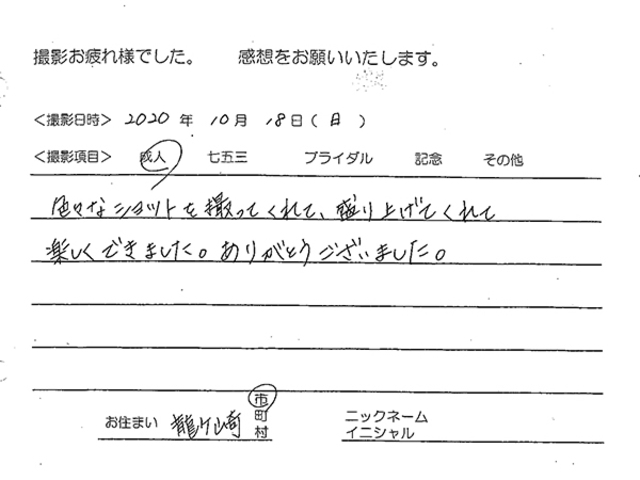 撮影お疲れ様でした。 感想をお願いいたします。
<撮影日時> 2020 年 10 月 18 日 ( 日 )
<撮影項目> 成人 七五三 ブライダル 記念 その他
色々なショットを撮ってくれて、盛り上げてくれて
楽しくできました。ありがとうございました。
お住まい 龍ケ崎 市 町 村
ニックネーム
イニシャル